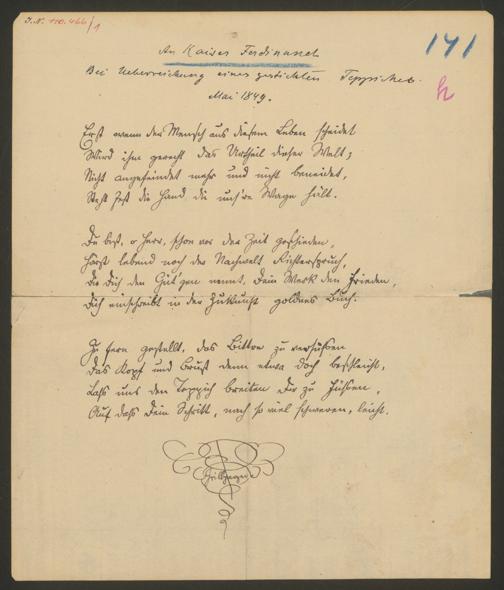 I.N. 110.466/1
171
An Kaiser Ferdinand
Bei Ueberreichung eines gestickten Teppiches.
Mai 1849.
Erst wenn der Mensch aus diesem Leben scheidet
Wird ihm gerecht das Urtheil dieser Welt;
Nicht angefeindet mehr und nicht beneidet,
Steht fest die Hand die uns're Wage hält.
Du bist, o Herr, schon vor der Zeit geschieden,
Hörst lebend noch der Nachwelt Richterspruch,
Die Dich den Güt'gen nennt, Dein Werk den Frieden,
Dich einschreibt in der Zukunft goldnes Buch.
Zu fern gestellt, das Bittre zu versüßen
Das Kopf und Brust denn etwa doch beschleicht,
Lass uns den Teppich breiten Dir zu Füßen,
Auf dass Dein Schritt, nach so viel schweren, leicht.